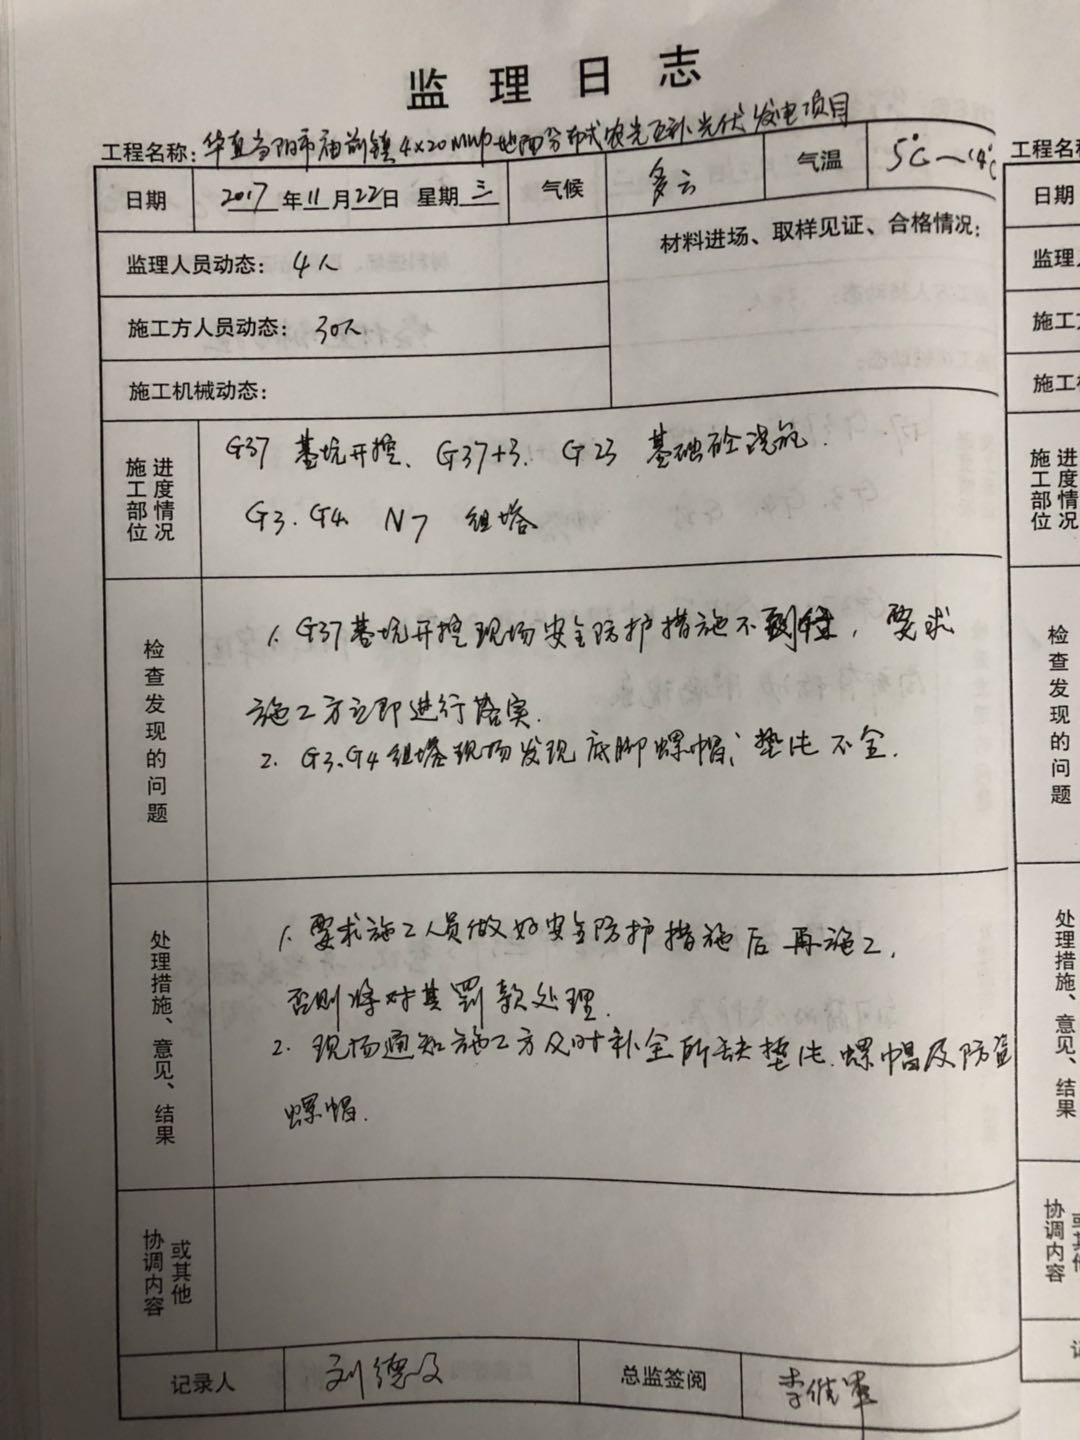 监理日志
工程名称：华直当阳市庙前镇4×20MWp地面分布式农光互补光伏发电项目
日期 2017年11月22日 星期三 气候 多云 气温 5℃~14℃
监理人员动态：4人
材料进场、取样见证、合格情况：
施工方人员动态：30人
施工机械动态：
施工部位进度情况
G37 基坑开挖、G37+3. G23 基础砼浇筑.
G3. G4. N7 组塔
检查发现的问题
1. G37基坑开挖现场安全防护措施不到位，要求
施工方立即进行落实.
2. G3、G4组塔现场发现底脚螺帽、垫片不全.
处理措施、意见、结果
1. 要求施工人员做好安全防护措施后再施工,
否则将对其罚款处理.
2. 现场通知施工方及时补全所缺垫片、螺帽及防盗
螺帽.
协调内容或其他
记录人 刘德 总监签阅 李
工程名
日期
监理人
施工
施工机
施工部位进度情况
检查发现的问题
处理措施、意见、结果
协调内容